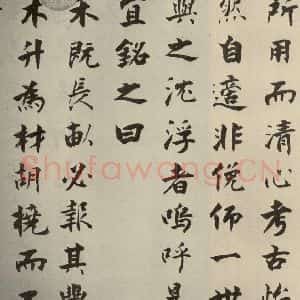 所用而清心考古怡
然自適非俛仰一世
與之沈浮者嗚呼是
宜銘之曰
木既長畝必報其豐
木升為材胡撓而不
Shufawang.CN